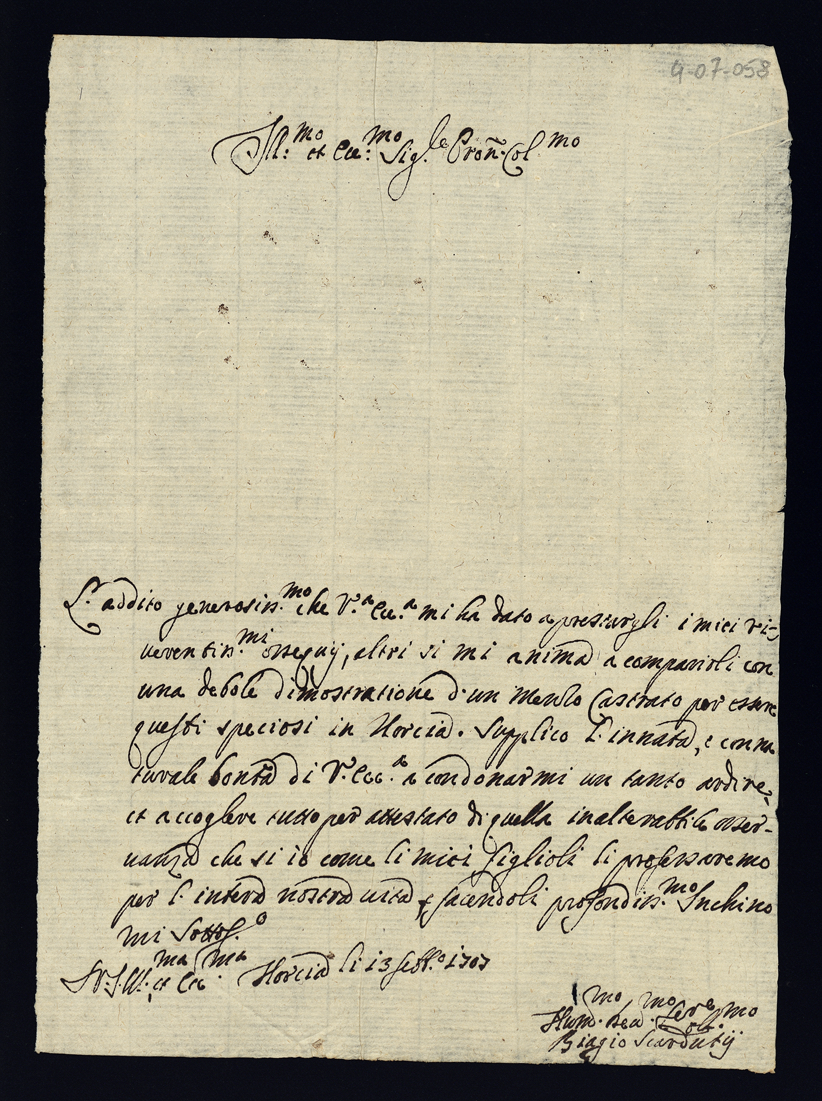 4-07-058
Ill:mo et Ecc:mo Sig.re Pron. Col.mo
L'addito generosiss.mo che V.a Ecc.a mi ha dato a prestargli i miei ri-
verentiss.mi ossequij, altri si mi anima a comparirli con
una debole dimostratione d'un Menlo Castrato per essere
questi speciosi in Norcia. Supplico l'innata, e conna
turale bontà di V. Ecc.a a condonarmi un tanto ardire,
et accoglere tutto per attestato di quella inalterabbile osser-
vanza che si io come li miei figlioli li professaremo
per l'intera nostra vita e facendoli profondiss.mo Inchino
mi Sottos.o
D. V. Ill.ma et Ecc.ma Norcia li 13 Sett.e 1707
Hum.mo Dev.mo Serv.e Obl.mo
Biagio Scardutij